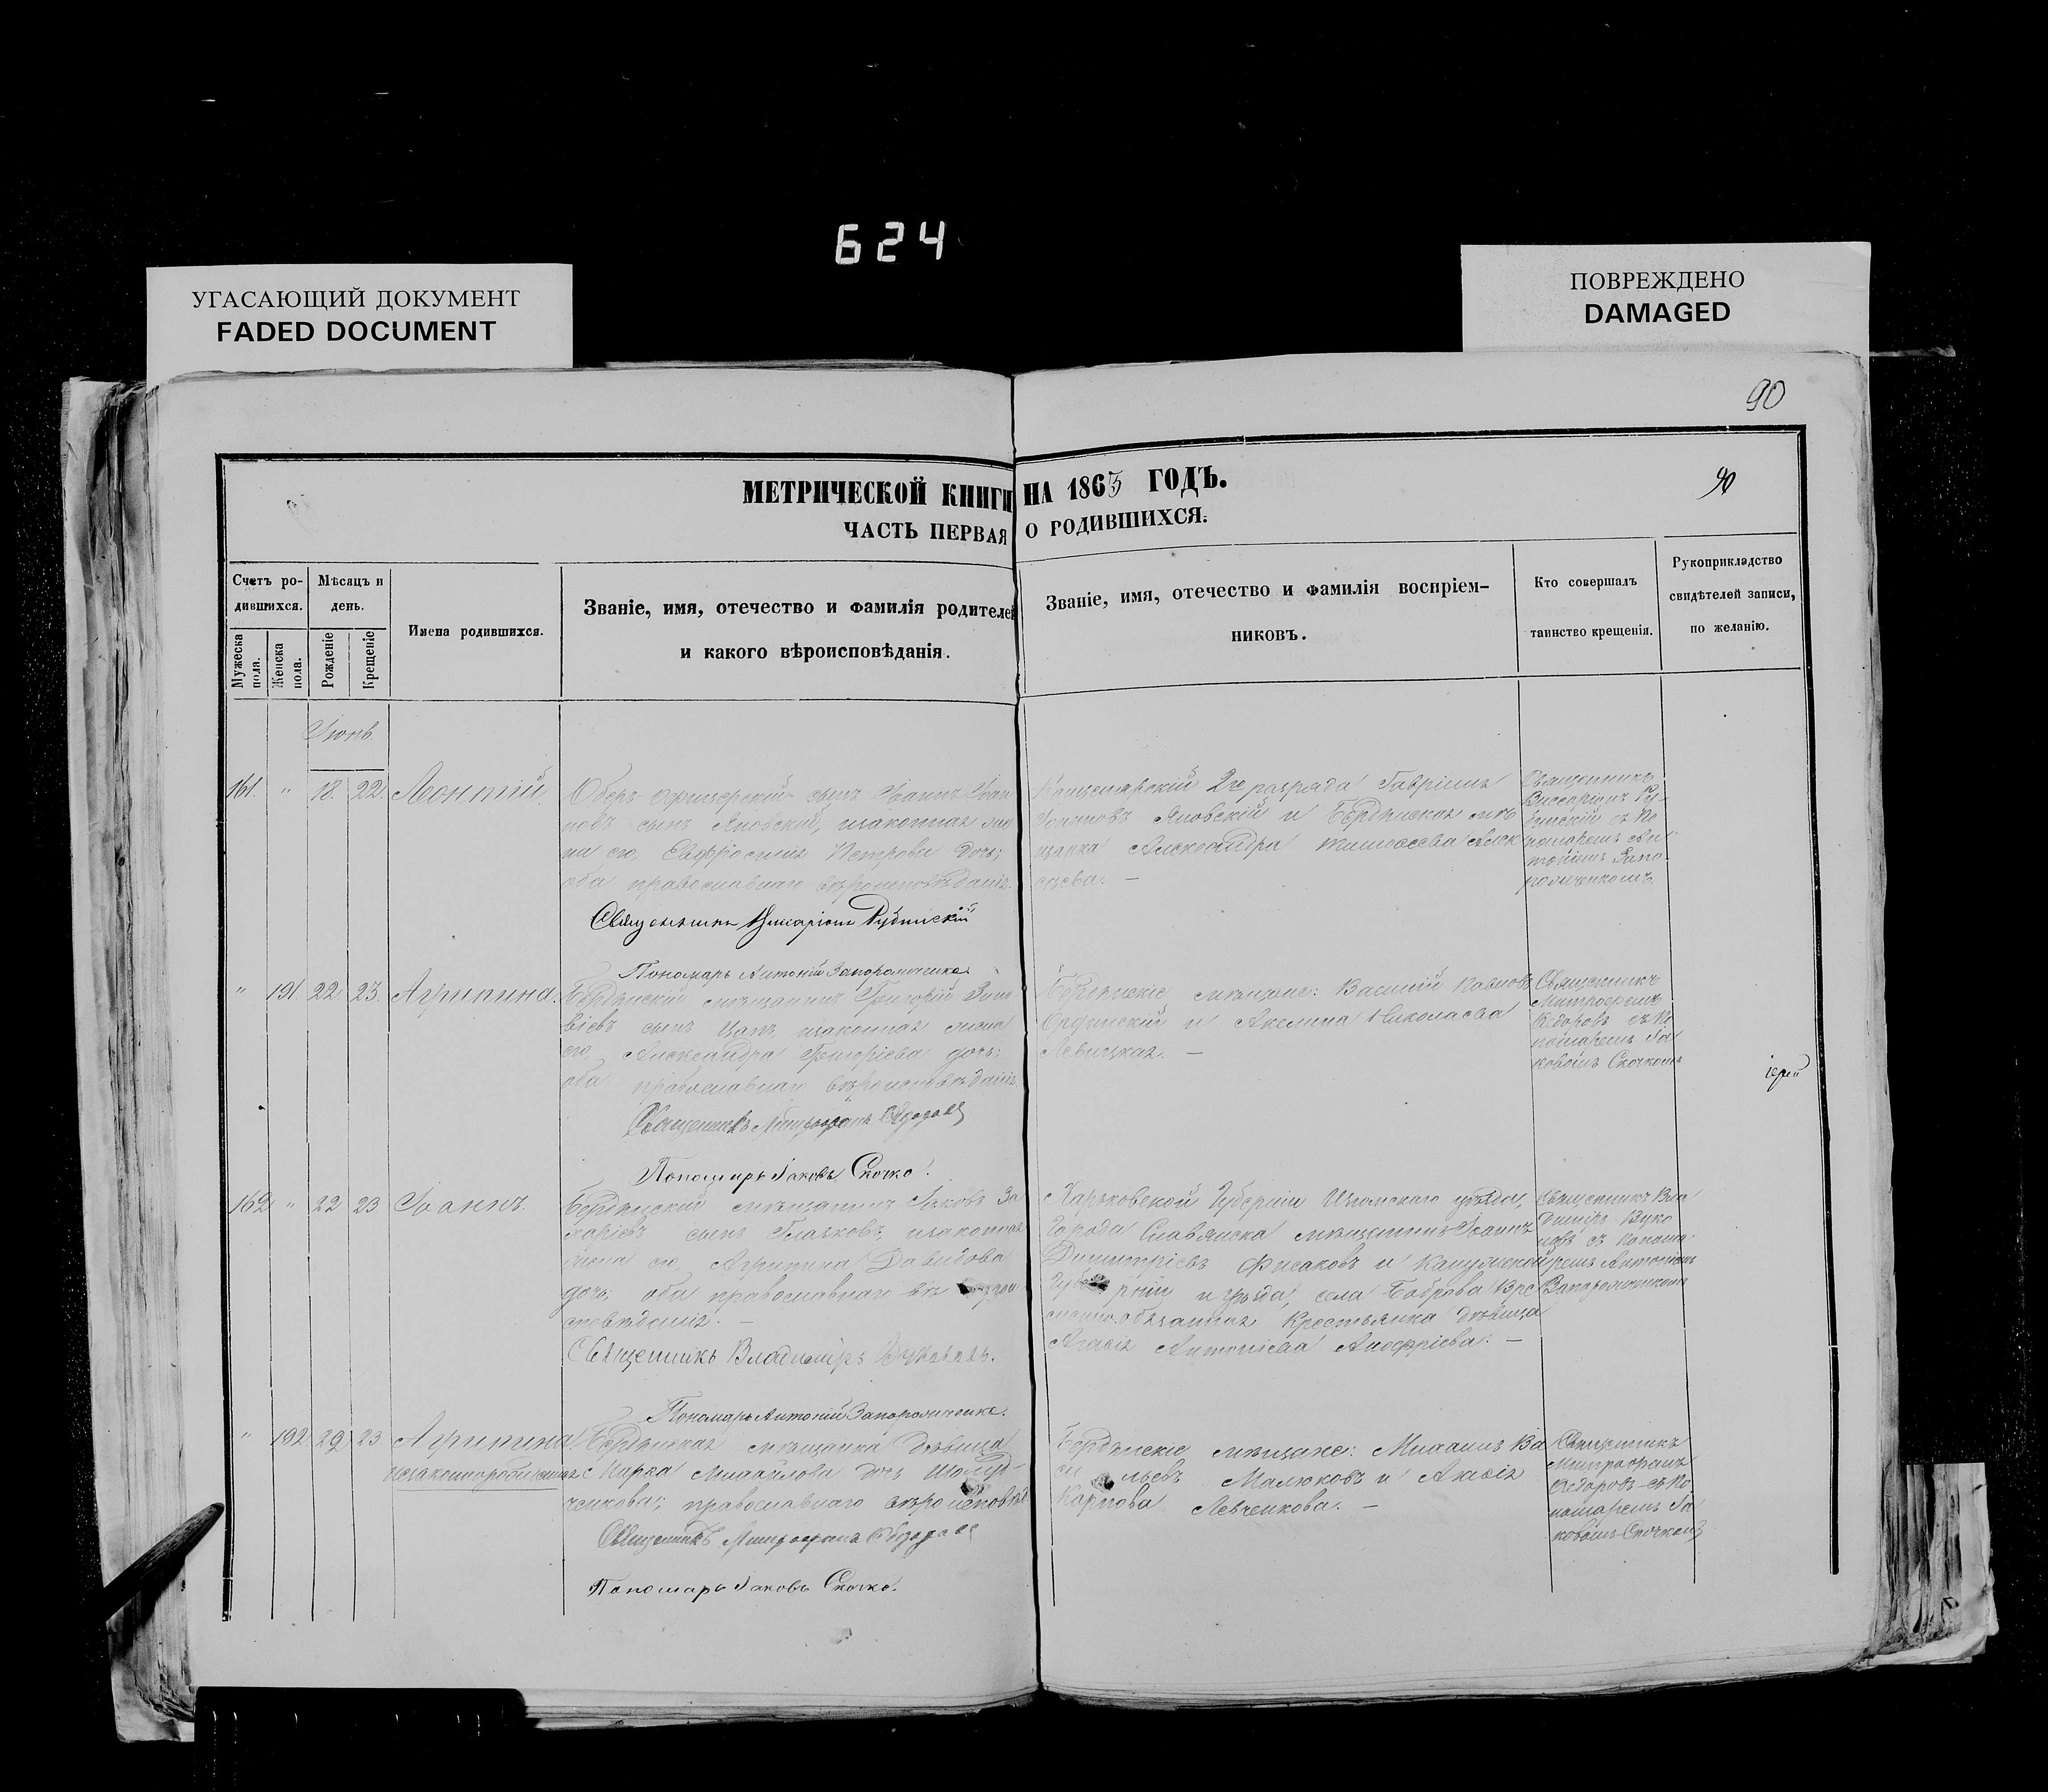 624
УГАСАЮЩИЙ ДОКУМЕНТ
FADED DOCUMENT
ПОВРЕЖДЕНО
DAMAGED
90
МЕТРИЧЕСКОЙ КНИГИ НА 1863 ГОДЪ.
90
ЧАСТЬ ПЕРВАЯ О РОДИВШИХСЯ.
Счетъ ро-
дившихся.
Мужеска пола.
Женска пола.
Мѣсяцъ и
день.
Рожденіе
Крещеніе
Имена родившихся.
Званіе, имя, отечество и фамилія родителей
и какого вѣроисповѣданія.
Званіе, имя, отечество и фамилія воспріем-
никовъ.
Кто совершалъ
таинство крещенія.
Рукоприкладство
свидѣтелей записи,
по желанію.
Іюнь.
161. " 18. 22. Леонтій.
Оберъ офицерскій сынъ Іоаннъ Іоан
новъ сынъ Яновскій, законная же
на его, Евфросинія Петрова дочь;
оба православнаго вѣроисповѣданія.
Священникъ Виссаріонъ Рубинскій
Пономарь Антоній Запорожченко
Канцелярскій 2го разряда Гавріилъ
Іоанновъ Яновскій и Бердянская мѣ
щанка Александра Тимоѳеева Алек
сѣева. —
Священникъ
Виссаріонъ Ру-
бинскій съ По
номаремъ Ан-
тоніемъ Запо-
рожченкомъ.
" 191. 22 23. Агрипина.
Бердянскій мѣщанинъ Григорій Зино
віевъ сынъ Цапъ, законная жена
его, Александра Григоріева дочь;
оба православнаго вѣроисповѣданія.
Священникъ Митрофанъ Ѳедоровъ
Пономарь Іаковъ Скочко.
Бердянскіе мѣщане: Василій Павловъ
и Акелина Николаева
Левицкая. —
Священникъ
Митрофанъ
Ѳедоровъ съ По
номаремъ Іа
ковомъ Скочкомъ
іерей
162 " 22 23 Іоаннъ.
Бердянскій мѣщанинъ Іаковъ За
харіевъ сынъ Глазковъ, законная
жена его, Агрипина Давидова
дочь; оба православнаго вѣ
сповѣданія. —
Священникъ Владиміръ Вуковъ.
Пономарь Антоній Запорожченко.
Харьковской Губерніи Изюмскаго уѣзда,
города Славянска мѣщанинъ Іоаннъ
Димитріевъ и Калужской
Губерніи и уѣзда, села Боброва Вре
менно-обязанная крестьянка дѣвица
Агаѳія Антоніева Аноѳріева. —
Священникъ Вла
диміръ Вуко
съ Понома
ремъ Антоніемъ
Запорожченкомъ
" 192 22 23 Агрипина
незаконнорожденная
Бердянская мѣщанка дѣвица
Марѳа Михайлова дочь
ченкова; православнаго вѣроисповѣд.
Священникъ Митрофанъ Ѳедоровъ
Пономарь Іаковъ Скочко.
Бердянскіе мѣщане: Михаилъ Ва
сильевъ Малюковъ и
Карпова Левченкова. —
Священникъ
Митрофанъ
Ѳедоровъ съ По
номаремъ Іа
ковомъ Скочкомъ